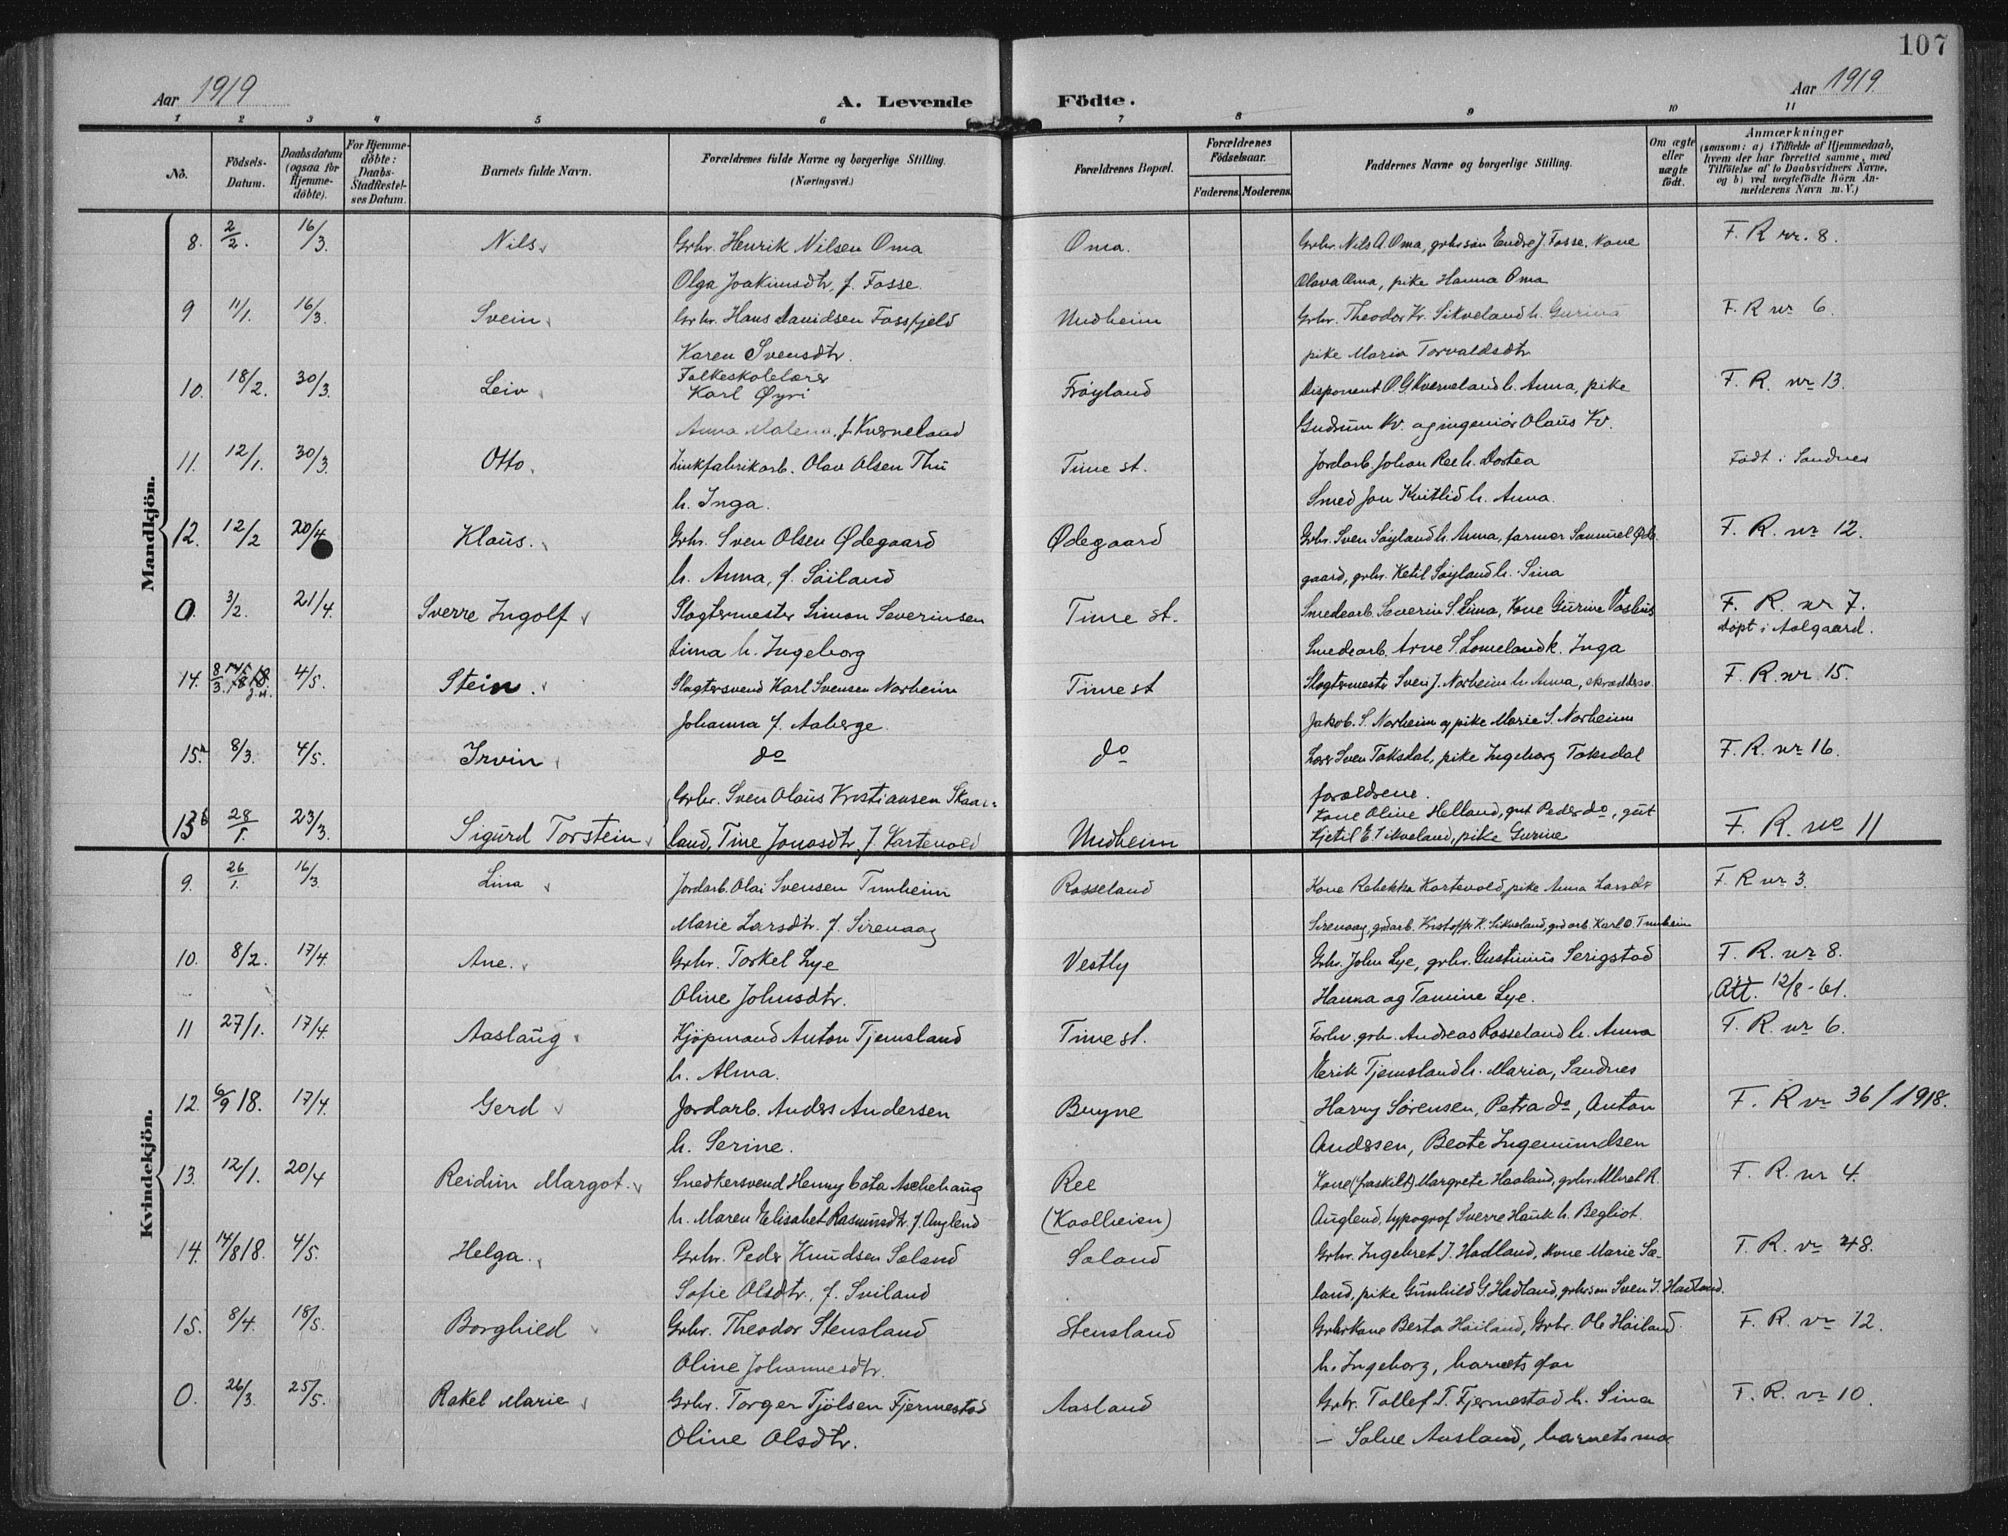 107
Aar 1919 A. Levende Födte. Aar 1919
1 2 3 4 5 6 7 8 9 10 11
No. Födsels-Datum. Daabsdatum (ogsaa for Hjemmedöbte). For Hjemmedöbte: Daabs-Stadfæstelses Datum. Barnets fulde Navn. Forældrenes fulde Navne og borgerlige Stilling. (Næringsvei.) Forældrenes Bopæl. Forældrenes Födselsaar. Faderens. Moderens. Faddernes Navne og borgerlige Stilling. Om ægte eller uægte födt. Anmærkninger (saasom: a) i Tilfælde af Hjemmedaab, hvem der har forrettet samme, med Tilföielse af to Daabsvidners Navne, og b) ved uægtefödte Börn Anmelderens Navn m. V.)
Mandkjön.
8. 2/2. 16/3. Nils Grbr. Henrik Nilsen Oma Oma. Grbr. Nils A. Oma, grbrsøn Endre J. Fosse, Kone F. R nr. 8.
Olga Joakimsdtr, f. Fosse. Olava Oma, pike Hanna Oma
9 11/1. 16/3. Svein Grbr. Hans Davidsen Fossfjeld Undheim Grbr. Theodor Kr. Sikveland h. Gurina F. R nr 6.
Karen Svensdtr. pike Maria Torvaldsdtr
10. 18/2. 30/3. Leiv Folkeskolelærer Karl Øyri Frøyland Disponent O. G. Kverneland h. Anna, pike F. R. nr 13.
Anna Malena, f. Kverneland Gudrun Kv. og ingeniør Olaus Kv.
11. 12/1. 30/3. Otto Zinkfabrikarb. Olav Olsen Thu Time st. Jordarb. Johan Ree h. Dortea Født i Sandnes
h. Inga. Smed Jon Kvitlid h. Anna.
12. 12/2 20/4 Klaus. Grbr. Sven Olsen Ødegaard Ødegaard Grbr. Sven Søyland h. Anna, farmor Samuel Øde F. R. nr 12.
h. Anna, f. Söiland gaard, grbr. Ketil Søyland h. Sina
0. 3/2. 21/4. Sverre Ingolf Slagtermester Simon Severinsen Time st. Smedearb. Severin S. Lima, Kone Gurine Vashus F. R. nr 7.
Lima h. Ingeborg Smedearb. Arne S. Lomeland h. Inga døpt i Aalgaard.
14. 8/3. 4/5. Stein. Slagtersvend Karl Svensen Norheim Time st Slagtermester Sven J. Norheim h. Anna, skræddersv. F. R. nr 15.
Johanna f. Aaberge. Jakob S. Norheim og pike Marie S. Norheim
15a 8/3. 4/5. Irvin do do Lærer Sven Taksdal, pike Ingeborg Taksdal F. R. nr 16.
Grbr. Sven Olaus Kristiansen Skaar- forældrene.
15b 28/1. 23/3. Sigurd Torstein land, Tine Jonasdtr. f. Kartevold Undheim Kone Oline Helland, gut Peder do, gut F. R. no 11
Kjetil E. Sikveland, pike Gurine
Kvindekjön.
9. 26/1. 16/3. Lina Jordarb. Olai Svensen Tunheim Rosseland Kone Rebekka Kartevold, pike Anna Larsdtr F. R nr 3.
Marie Larsdtr. f. Sirevaag Sirevaag, grdarb. Kristoffer K. Sikveland, grdarb. Karl O. Tunheim
10. 8/2. 17/4. Ane. Grbr. Torkel Lye Vestly Grbr. John Lye, grbr. Gustinius Serigstad F. R. nr 8.
Oline Johnsdtr. Hanna og Tomine Lye. Att. 12/8-61.
11 27/1. 17/4. Aaslaug Kjøpmand Anton Tjemsland Time st. Forhv. grbr. Andreas Rosseland h. Anna F. R. nr 6.
h. Alma. Eerik Tjemsland h. Maria, Sandnes
12. 6/9 18. 17/4. Gerd Jordarb. Anders Andersen Bryne Harry Sørensen, Petra do, Anton F. R nr 36/1918.
h. Serine. Andersen, Beate Ingemundsen
13. 12/1. 20/4 Reidun Margot. Snedkersvend Henny Cato Aschehaug Ree Kone (fraskilt) Margrete Haaland, grbr Albret R. F. R. nr 4.
h. Maren Elisabet Rasmusdtr. f. Auglend (Kaalheien) Auglend, typograf Sverre Hauk h. Begliot.
14. 14/8 18. 4/5. Helga Grbr. Peder Knudsen Saland Saland Grbr. Ingebret J. Hadland, Kone Marie Sa- F. R. nr 48.
Sofie Olsdtr, f. Sviland land, pike Gunhild G. Hadland, grbrsøn Sven I. Hadland.
15. 8/4. 18/5. Borghild Grbr. Theodor Stensland Stensland Grbrkone Berta Høiland, Grbr. Ole Høiland F. R. nr 12.
Oline Johannesdtr. h. Ingeborg, barnets far
0. 26/3. 25/5. Rakel Marie Grbr. Torger Tjölsen Fjermestad Aasland Grbr. Tollef T. Fjermestad h. Sina F. R. nr 10.
Oline Olsdtr. — Salve Aasland, barnets mor